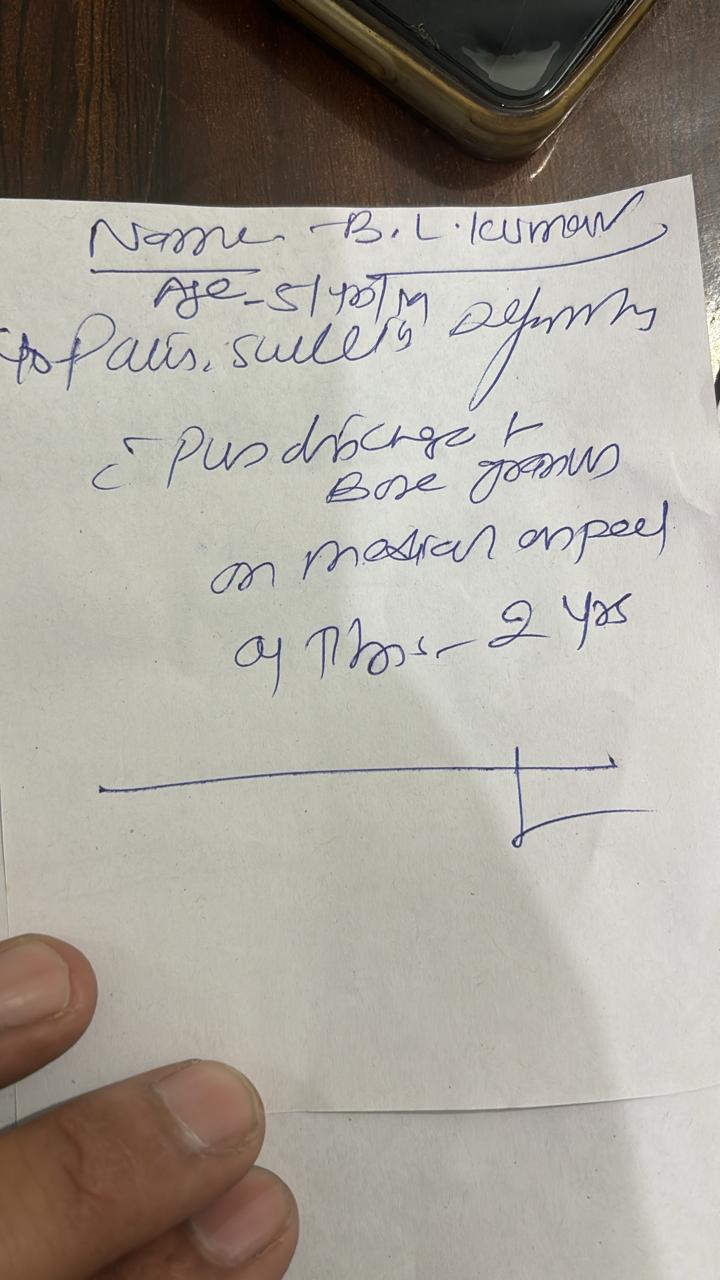 Name - B. L. Kumar
Age - 51 yrs/M
c/o Pain, swelling deformity
c̄ Pus discharge +
Bone
on medial aspect
of Tibia - 2 yrs